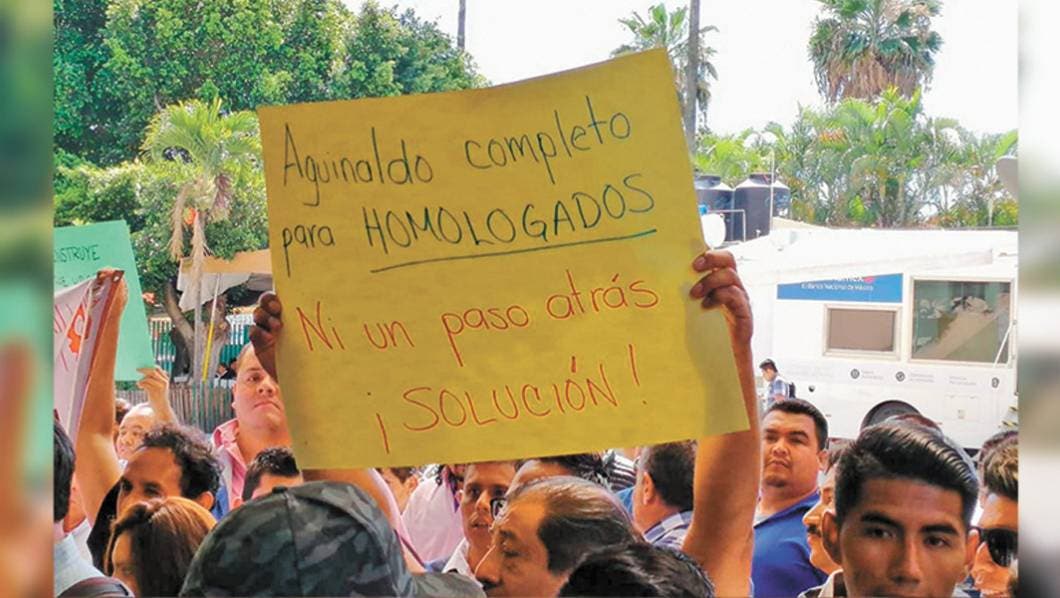 Aguinaldo completo
para HOMOLOGADOS
Ni un paso atrás
¡SOLUCIÓN!
El Banco Nacional de México